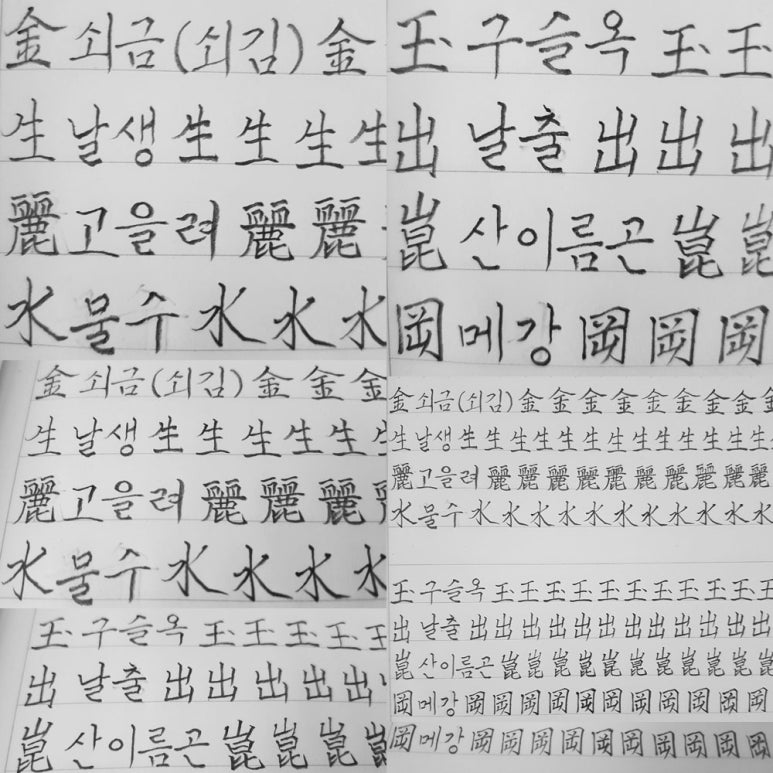 金 쇠금(쇠김) 金
生 날생 生 生 生 生
麗 고을려 麗 麗
水 물수 水 水 水
玉 구슬옥 玉 玉
出 날출 出 出 出
崑 산이름곤 崑 崑
岡 메강 岡 岡 岡
金 쇠금(쇠김) 金 金 金
生 날생 生 生 生 生 生 生
麗 고을려 麗 麗 麗 麗
水 물수 水 水 水 水
玉 구슬옥 玉 玉 玉 玉 玉
出 날출 出 出 出 出 出
崑 산이름곤 崑 崑 崑 崑
金 쇠금(쇠김) 金 金 金 金 金 金 金 金 金
生 날생 生 生 生 生 生 生 生 生 生 生 生
麗 고을려 麗 麗 麗 麗 麗 麗 麗 麗 麗 麗
水 물수 水 水 水 水 水 水 水 水 水 水 水
玉 구슬옥 玉 玉 玉 玉 玉 玉 玉 玉 玉 玉 玉
出 날출 出 出 出 出 出 出 出 出 出 出 出
崑 산이름곤 崑 崑 崑 崑 崑 崑 崑 崑 崑 崑
岡 메강 岡 岡 岡 岡 岡 岡 岡 岡 岡 岡 岡
岡 메강 岡 岡 岡 岡 岡 岡 岡 岡 岡 岡